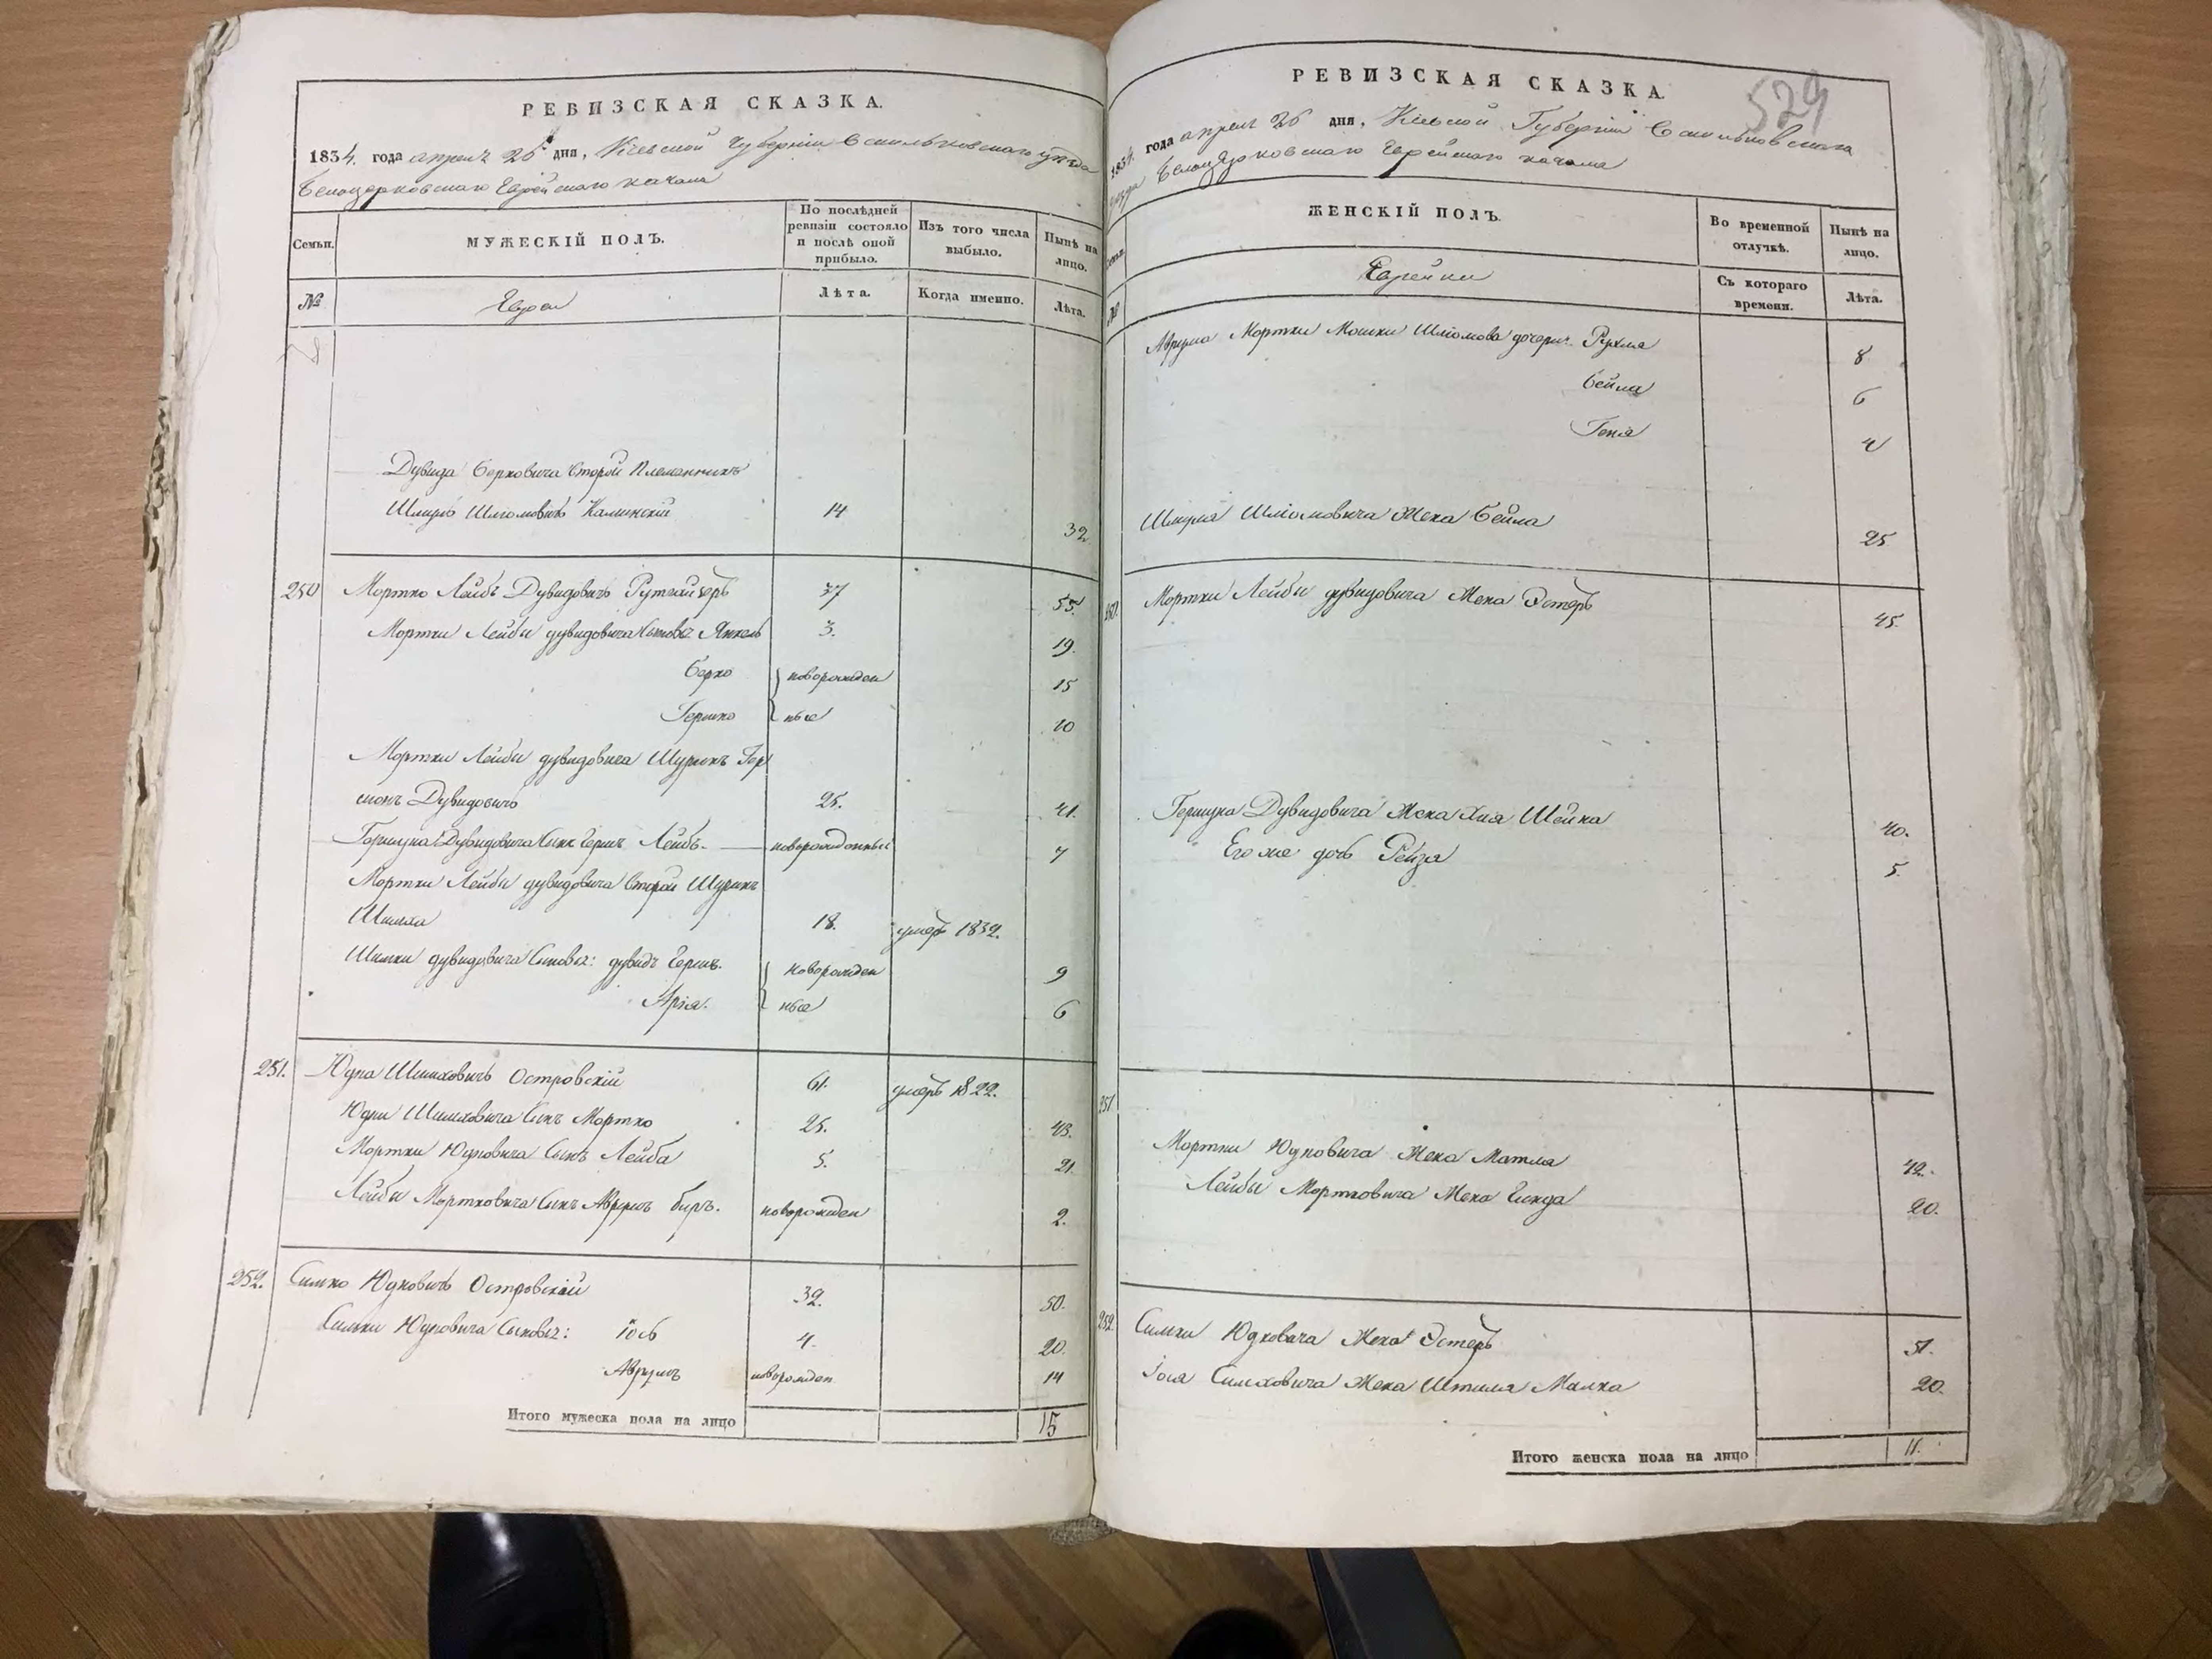 РЕВИЗСКАЯ СКАЗКА.
1834. года апреля 26 дня, Киевской Губернии Васильковскаго уезда
Белоцерковскаго Еврейскаго кагала
Семьи.
МУЖЕСКІЙ ПОЛЪ.
По послѣдней ревизіи состояло и послѣ оной прибыло.
Изъ того числа выбыло.
Нынѣ на лицо.
№
Евреи
Лѣта.
Когда именно.
Лѣта.
Дувида Берковича Второй Племянникъ
Шмуль Шлiомовичъ Калинскiй 14 32
250 Мортко Лейбъ Дувидовичъ 37 55.
Мортки Лейбы дувидовича Сыновья Янкель 3. 19.
Берко новорожден 15
Гершко ные 10
Мортки Лейбы дувидовича Шуринъ Гер
шонъ Дувидовичъ 25. 41.
Дувидовича Сынъ Герш Лейбъ. новорожденный 7
Мортки Лейбы дувидовича Второй Шуринъ
Шимха 18. умеръ 1832.
Шимхи дувидовича Сыновья: дувидъ Гершъ. новорожден 9
Арія. ные 6
251. Юдка Шимховичъ Островскій 61. умеръ 1822.
Юдки Шимховича Сынъ Мортко 25. 43.
Мортки Юдковича Сынъ Лейба 5. 21
Лейбы Мортковича Сынъ Аврумъ беръ. новорожден 2.
252. Симхо Юдковичъ Островскій 32. 50.
Симхи Юдковича Сыновья: Iось 4. 20.
Аврумъ новорожден 14
Итого мужеска пола на лицо 15
РЕВИЗСКАЯ СКАЗКА.
529
1834. года апреля 26 дня, Киевской Губерніи Васильковскаго
уезда Белоцерковскаго Еврейскаго кагала
ЖЕНСКІЙ ПОЛЪ.
Во временной отлучкѣ.
Нынѣ на лицо.
№
Еврейки
Съ котораго времени.
Лѣта.
Аврума Мортки Мошки Шлiомова дочери Рухля 8
Бейла 6
Геня 4
Шмуля Шлiомовича Жена Бейла 25
250. Мортки Лейбы дувидовича Жена Эстеръ 45.
Дувидовича Жена Хая Шейна 40.
Его же дочь Рейзя 5.
251.
Мортки Юдковича Жена Матля 42.
Лейбы Мортковича Жена Гинда 20.
252. Симхи Юдковича Жена Эстеръ 51.
Iося Симховича Жена Малка 20.
Итого женска пола на лицо 11.